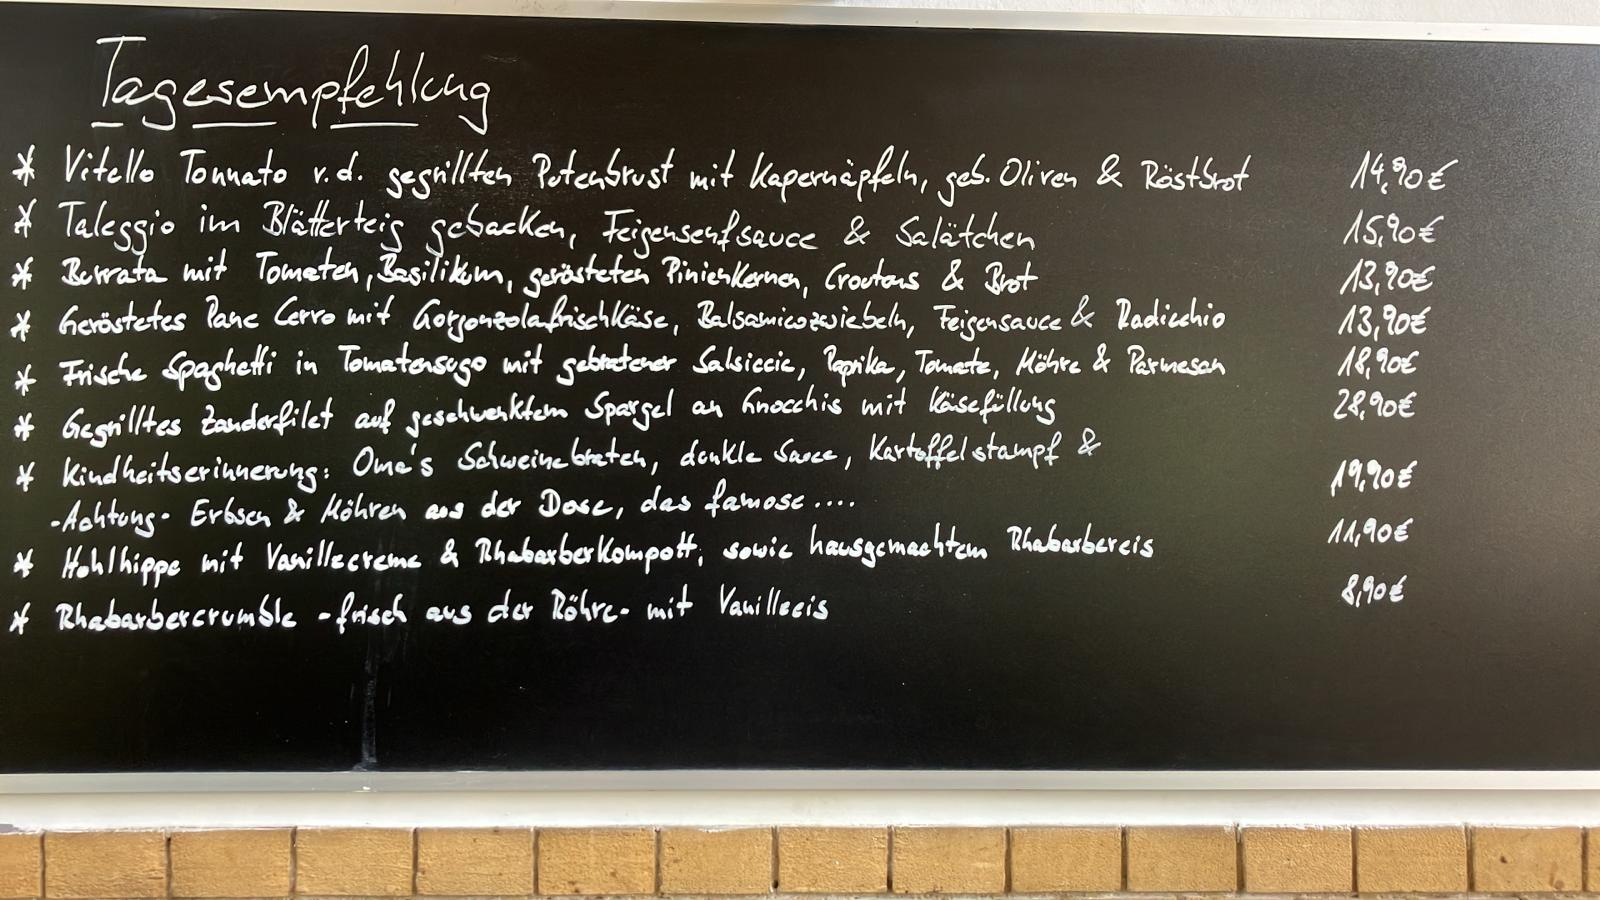 Tagesempfehlung
* Vitello Tonnato v.d. gegrillten Putenbrust mit Kapernäpfeln, geb. Oliven & Röstbrot 14,90€
* Taleggio im Blätterteig gebacken, Feigensenfsauce & Salätchen 15,90€
* Burrata mit Tomaten, Basilikum, gerösteten Pinienkernen, Croutons & Brot 13,90€
* Geröstetes Pane Cerro mit Gorgonzolafrischkäse, Balsamicozwiebeln, Feigensauce & Radicchio 13,90€
* Frische Spaghetti in Tomatensugo mit gebratener Salsiccie, Paprika, Tomate, Möhre & Parmesan 18,90€
* Gegrilltes Zanderfilet auf geschwenktem Spargel an Gnocchis mit Käsefüllung 28,90€
* Kindheitserinnerung: Oma's Schweinebraten, dunkle Sauce, Kartoffelstampf & 19,90€
-Achtung- Erbsen & Möhren aus der Dose, das famose....
* Hohlhippe mit Vanillecreme & Rhabarberkompott, sowie hausgemachtem Rhabarbereis 11,90€
* Rhabarbercrumble -frisch aus der Röhre- mit Vanilleeis 8,90€